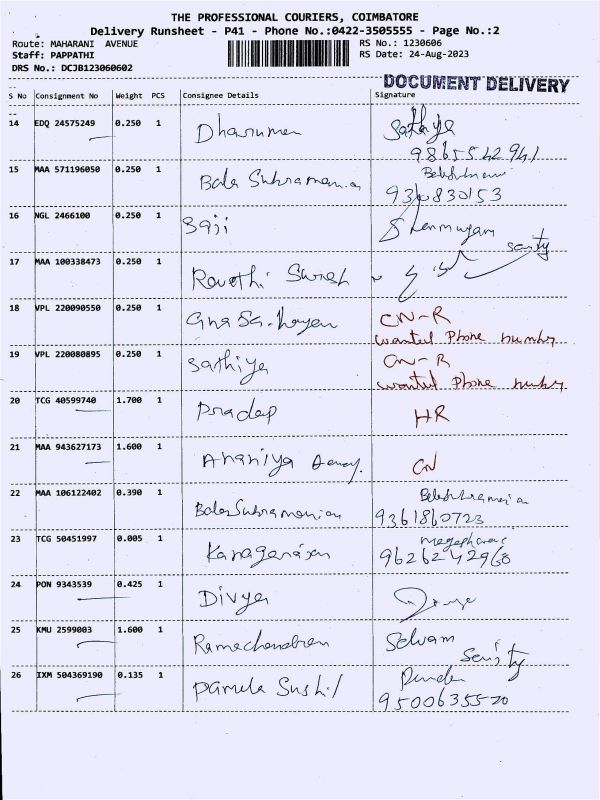 THE PROFESSIONAL COURIERS, COIMBATORE
Delivery Runsheet - P41 - Phone No.:0422-3505555 - Page No.:2
Route: MAHARANI AVENUE RS No.: 1230606
Staff: PAPPATHI RS Date: 24-Aug-2023
DRS No.: DCJB123060602
DOCUMENT DELIVERY
S No Consignment No Weight PCS Consignee Details Signature
14 EDQ 24575249 0.250 1 Dharumen Sathya
9865542941
15 MAA 571196050 0.250 1 Bala Subramanian
930830153
16 NGL 2466100 0.250 1 Saji Shenmugam
17 MAA 100338473 0.250 1 Revathi Suresh
18 VPL 220090550 0.250 1 CN-R
wanted Phone number
19 VPL 220080895 0.250 1 Sathiya CN-R
wanted Phone number
20 TCG 40599740 1.700 1 Pradep HR
21 MAA 943627173 1.600 1 Ananiya CN
22 MAA 106122402 0.390 1 Bala Subramanian
9361860723
23 TCG 50451997 0.005 1 Kanagarajan
9626242968
24 PON 9343539 0.425 1 Divya
25 KMU 2599003 1.600 1 Ramachandran Selvam
26 IXM 504369190 0.135 1 Pamela Sushil
9500635520